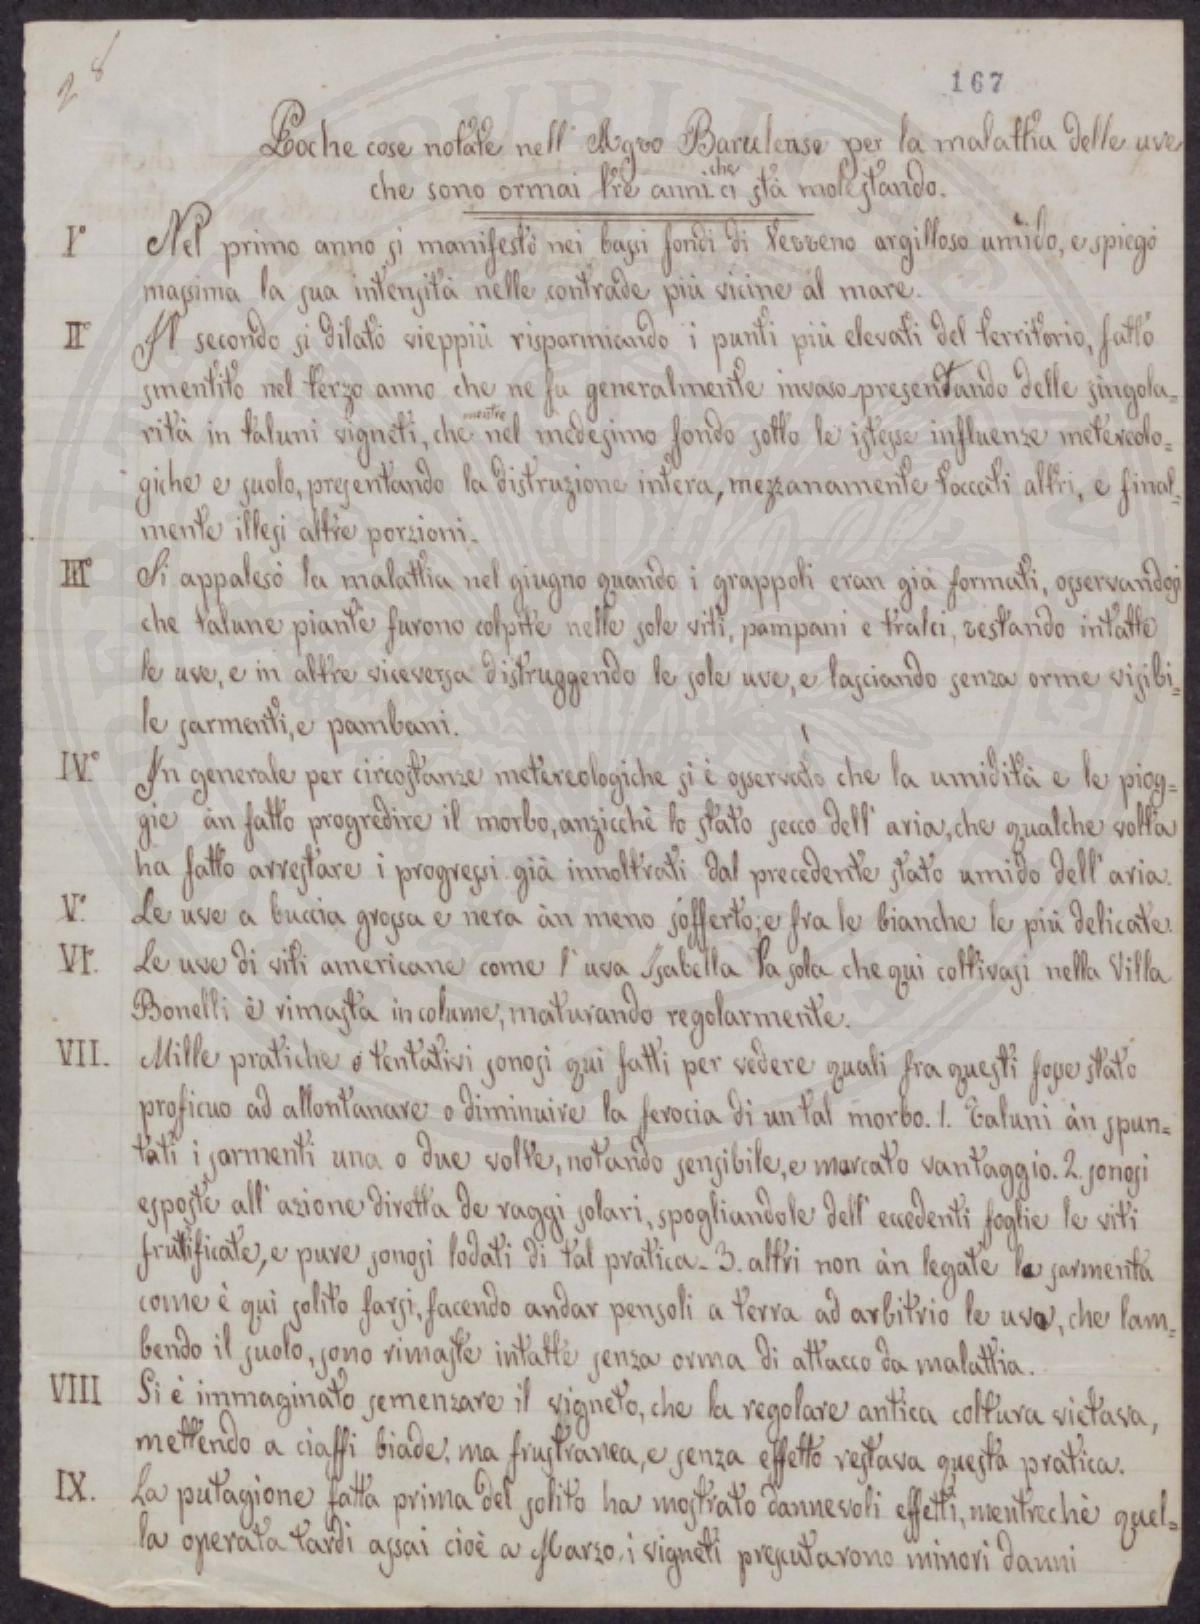 28
167
Poche cose notate nell' Agro Barulense per la malattia delle uve
che sono ormai tre anni che ci stà molestando.
I° Nel primo anno si manifestò nei bassi fondi di terreno argilloso umido, e spiegò
massima la sua intensità nelle contrade più vicine al mare.
II° Il secondo si dilatò vieppiù risparmicando i punti più elevati del territorio, fatto
smentito nel terzo anno che ne fu generalmente invaso presentando delle singola=
rità in taluni vigneti, che mentre nel medesimo fondo sotto le istesse influenze metereolo=
giche e suolo, presentando la distruzione intera, mezzanamente toccati altri, e final=
mente illesi altre porzioni.
III° Si appalesò la malattia nel giugno quando i grappoli eran già formati, osservandosi
che talune piante furono colpite nelle sole viti, pampani e tralci, restando intatte
le uve, e in altre viceversa distruggendo le sole uve, e lasciando senza orme visibi=
le sarmenti, e pambani.
IV.° In generale per circostanze metereologiche si è osservato che la umidità e le piog=
gie àn fatto progredire il morbo, anzicchè lo stato secco dell' aria, che qualche volta
ha fatto arrestare i progressi già innoltrati dal precedente stato umido dell' aria.
V.° Le uve a buccia grossa e nera àn meno sofferto; e fra le bianche le più delicate.
VI°. Le uve di viti americane come l' uva Isabella la sola che qui coltivasi nella Villa
Bonelli è rimasta incolume, maturando regolarmente.
VII. Mille pratiche e tentativi sonosi qui fatti per vedere quali fra questi fosse stato
proficuo ad allontanare o diminuire la ferocia di un tal morbo. 1. Taluni àn spun=
tati i sarmenti una o due volte, notando sensibile, e marcato vantaggio. 2. sonosi
esposte all' azione diretta de raggi solari, spogliandole dell' eccedenti foglie le viti
frutificate, e pure sonosi lodati di tal pratica - 3. altri non àn legate le sarmenta
come è qui solito farsi, facendo andar pensoli a terra ad arbitrio le uve, che lam=
bendo il suolo, sono rimaste intatte senza orma di attacco da malattia.
VIII Si è immaginato semenzare il vigneto, che la regolare antica coltura vietava,
mettendo a ciaffi biade; ma frustranea, e senza effetto restava questa pratica.
IX. La putagione fatta prima del solito ha mostrato dannevoli effetti, mentrechè quel=
la operata tardi assai cioè a Marzo, i vigneti presentarono minori danni